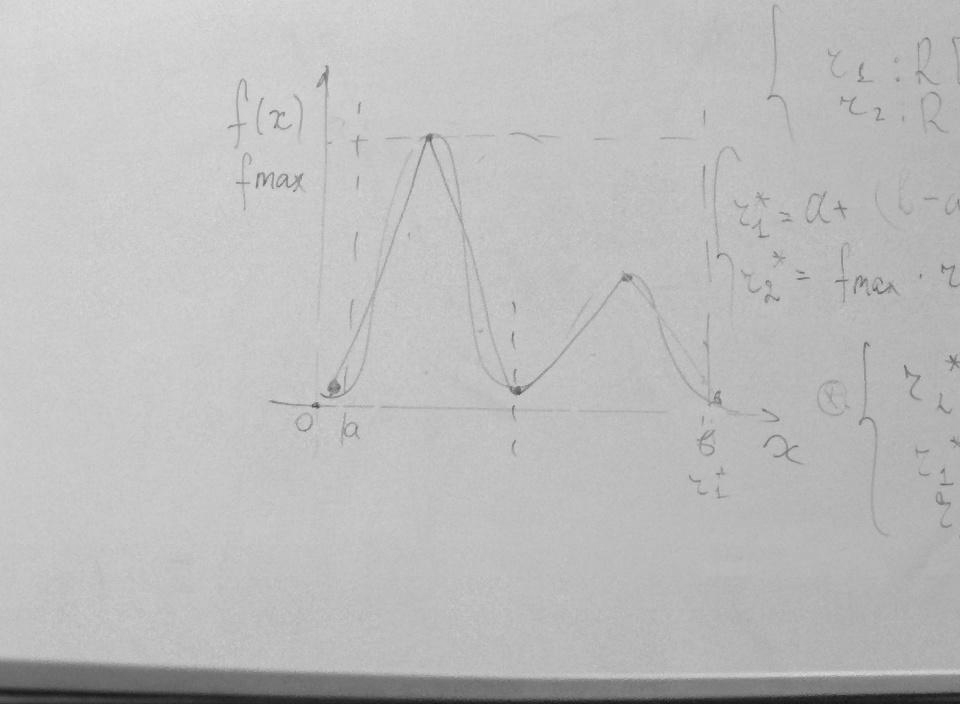 f(x)
fmax
0 a
b
x
r₁*
r₁ : R[
r₂ : R
r₁* = a + (b - a
r₂* = fmax · r
r₂*
r₁*